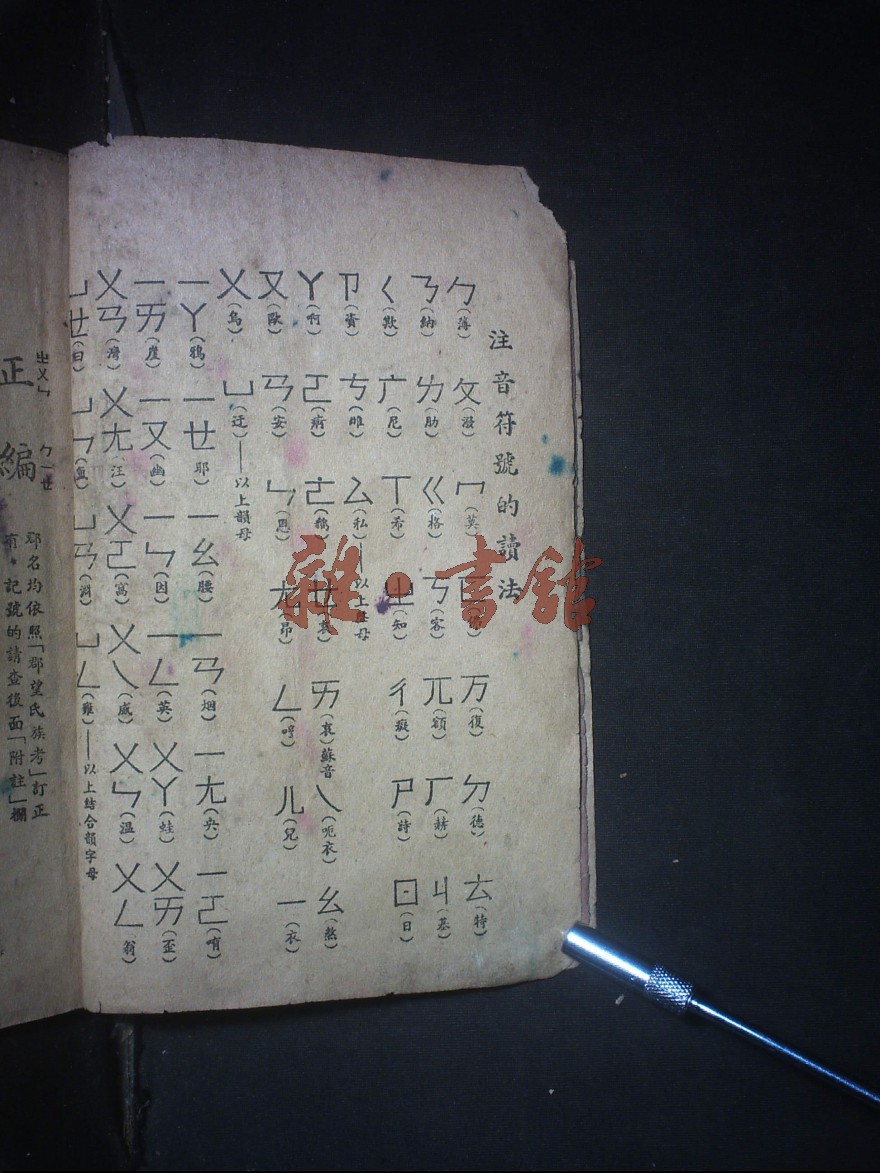 注音符號的讀法
ㄅ(薄) ㄆ(潑) ㄇ(莫) ㄈ(佛) ㄪ(復) ㄉ(德) ㄊ(特)
ㄋ(納) ㄌ(肋) ㄍ(格) ㄎ(客) ㄫ(額) ㄏ(赫) ㄐ(基)
ㄑ(欺) ㄬ(尼) ㄒ(希) ㄓ(知) ㄔ(癡) ㄕ(詩) ㄖ(日)
ㄗ(資) ㄘ(雌) ㄙ(私)——以上聲母
ㄚ(啊) ㄛ(痾) ㄜ(鵝) ㄝ ㄞ(哀)蘇音 ㄟ(呃衣) ㄠ(熬)
ㄡ(歐) ㄢ(安) ㄣ(恩) ㄤ(昂) ㄥ(哼) ㄦ(兒) ㄧ(衣)
ㄨ(烏) ㄩ(迂)——以上韻母
ㄧㄚ(鴉) ㄧㄝ(耶) ㄧㄠ(腰) ㄧㄢ(烟) ㄧㄤ(央) ㄧㄛ(唷)
ㄧㄞ(崖) ㄧㄡ(幽) ㄧㄣ(因) ㄧㄥ(英) ㄨㄚ(蛙) ㄨㄞ(歪)
ㄨㄢ(灣) ㄨㄤ(汪) ㄨㄛ(窩) ㄨㄟ(威) ㄨㄣ(溫) ㄨㄥ(翁)
ㄩㄝ(曰) ㄩㄣ(氳) ㄩㄢ(淵) ㄩㄥ(雍)——以上結合韻字母
正編
郡名均依照「郡望氏族考」訂正
有·記號的請查後面「附註」欄
雜·書館